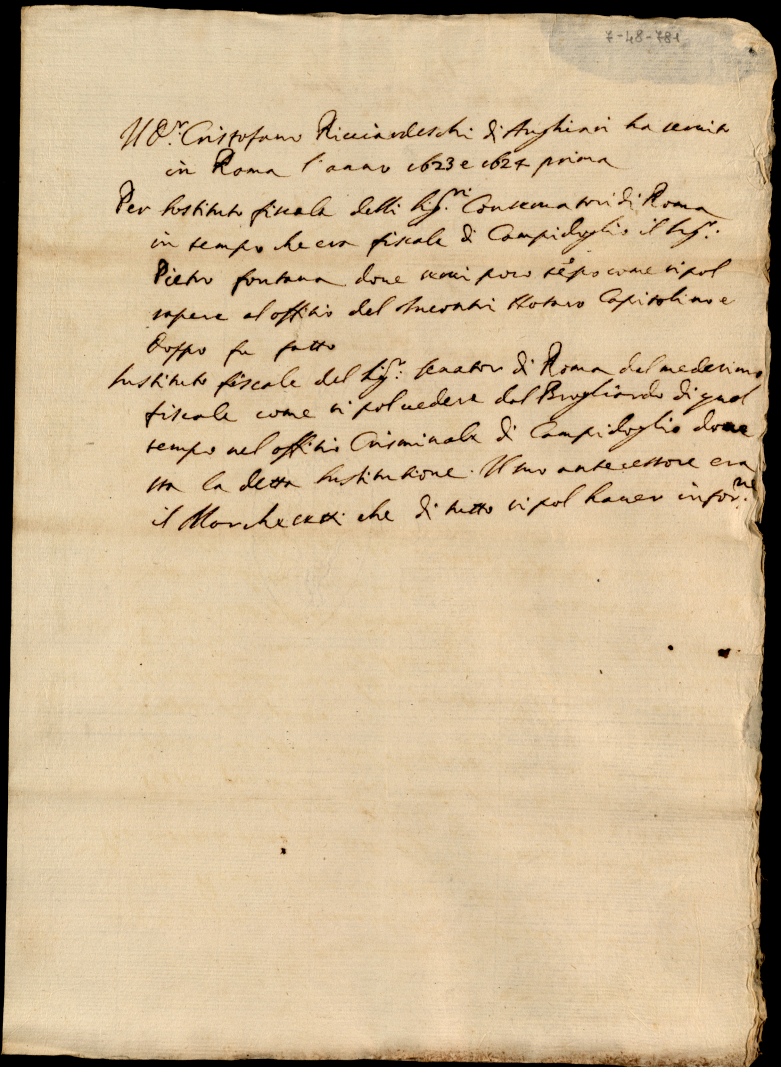 7-48-781
Il D.r Cristofano Ricciardeschi di Anghiari ha servito
in Roma l'anno 1623 e 1624 prima
Per sostituto fiscale delli Sig.ri Conservatori di Roma
in tempo che era fiscale di Campidoglio il Sig.r
Pietro fontana dove servi poco tẽpo come si pol
sapere al offitio del Notaro Capitolino e
doppo fu fatto
sustituto fiscale del Sig.r senator di Roma del medesimo
fiscale come si pol vedere dal Brogliardo di quel
tempo nel offitio Criminale di Campidoglio dove
sta la detta sustitutione. Il suo antecessore era
il che di tutto si pol haver infor.ne